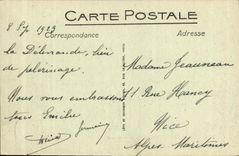 CARTE POSTALE
Correspondance
Adresse
1923
La Délivrande, lieu
de pèlerinage.
Nous vous embrassons
tous Emilie
Madame Jeauneau
Rue Hancy
Nice
Alpes Maritimes